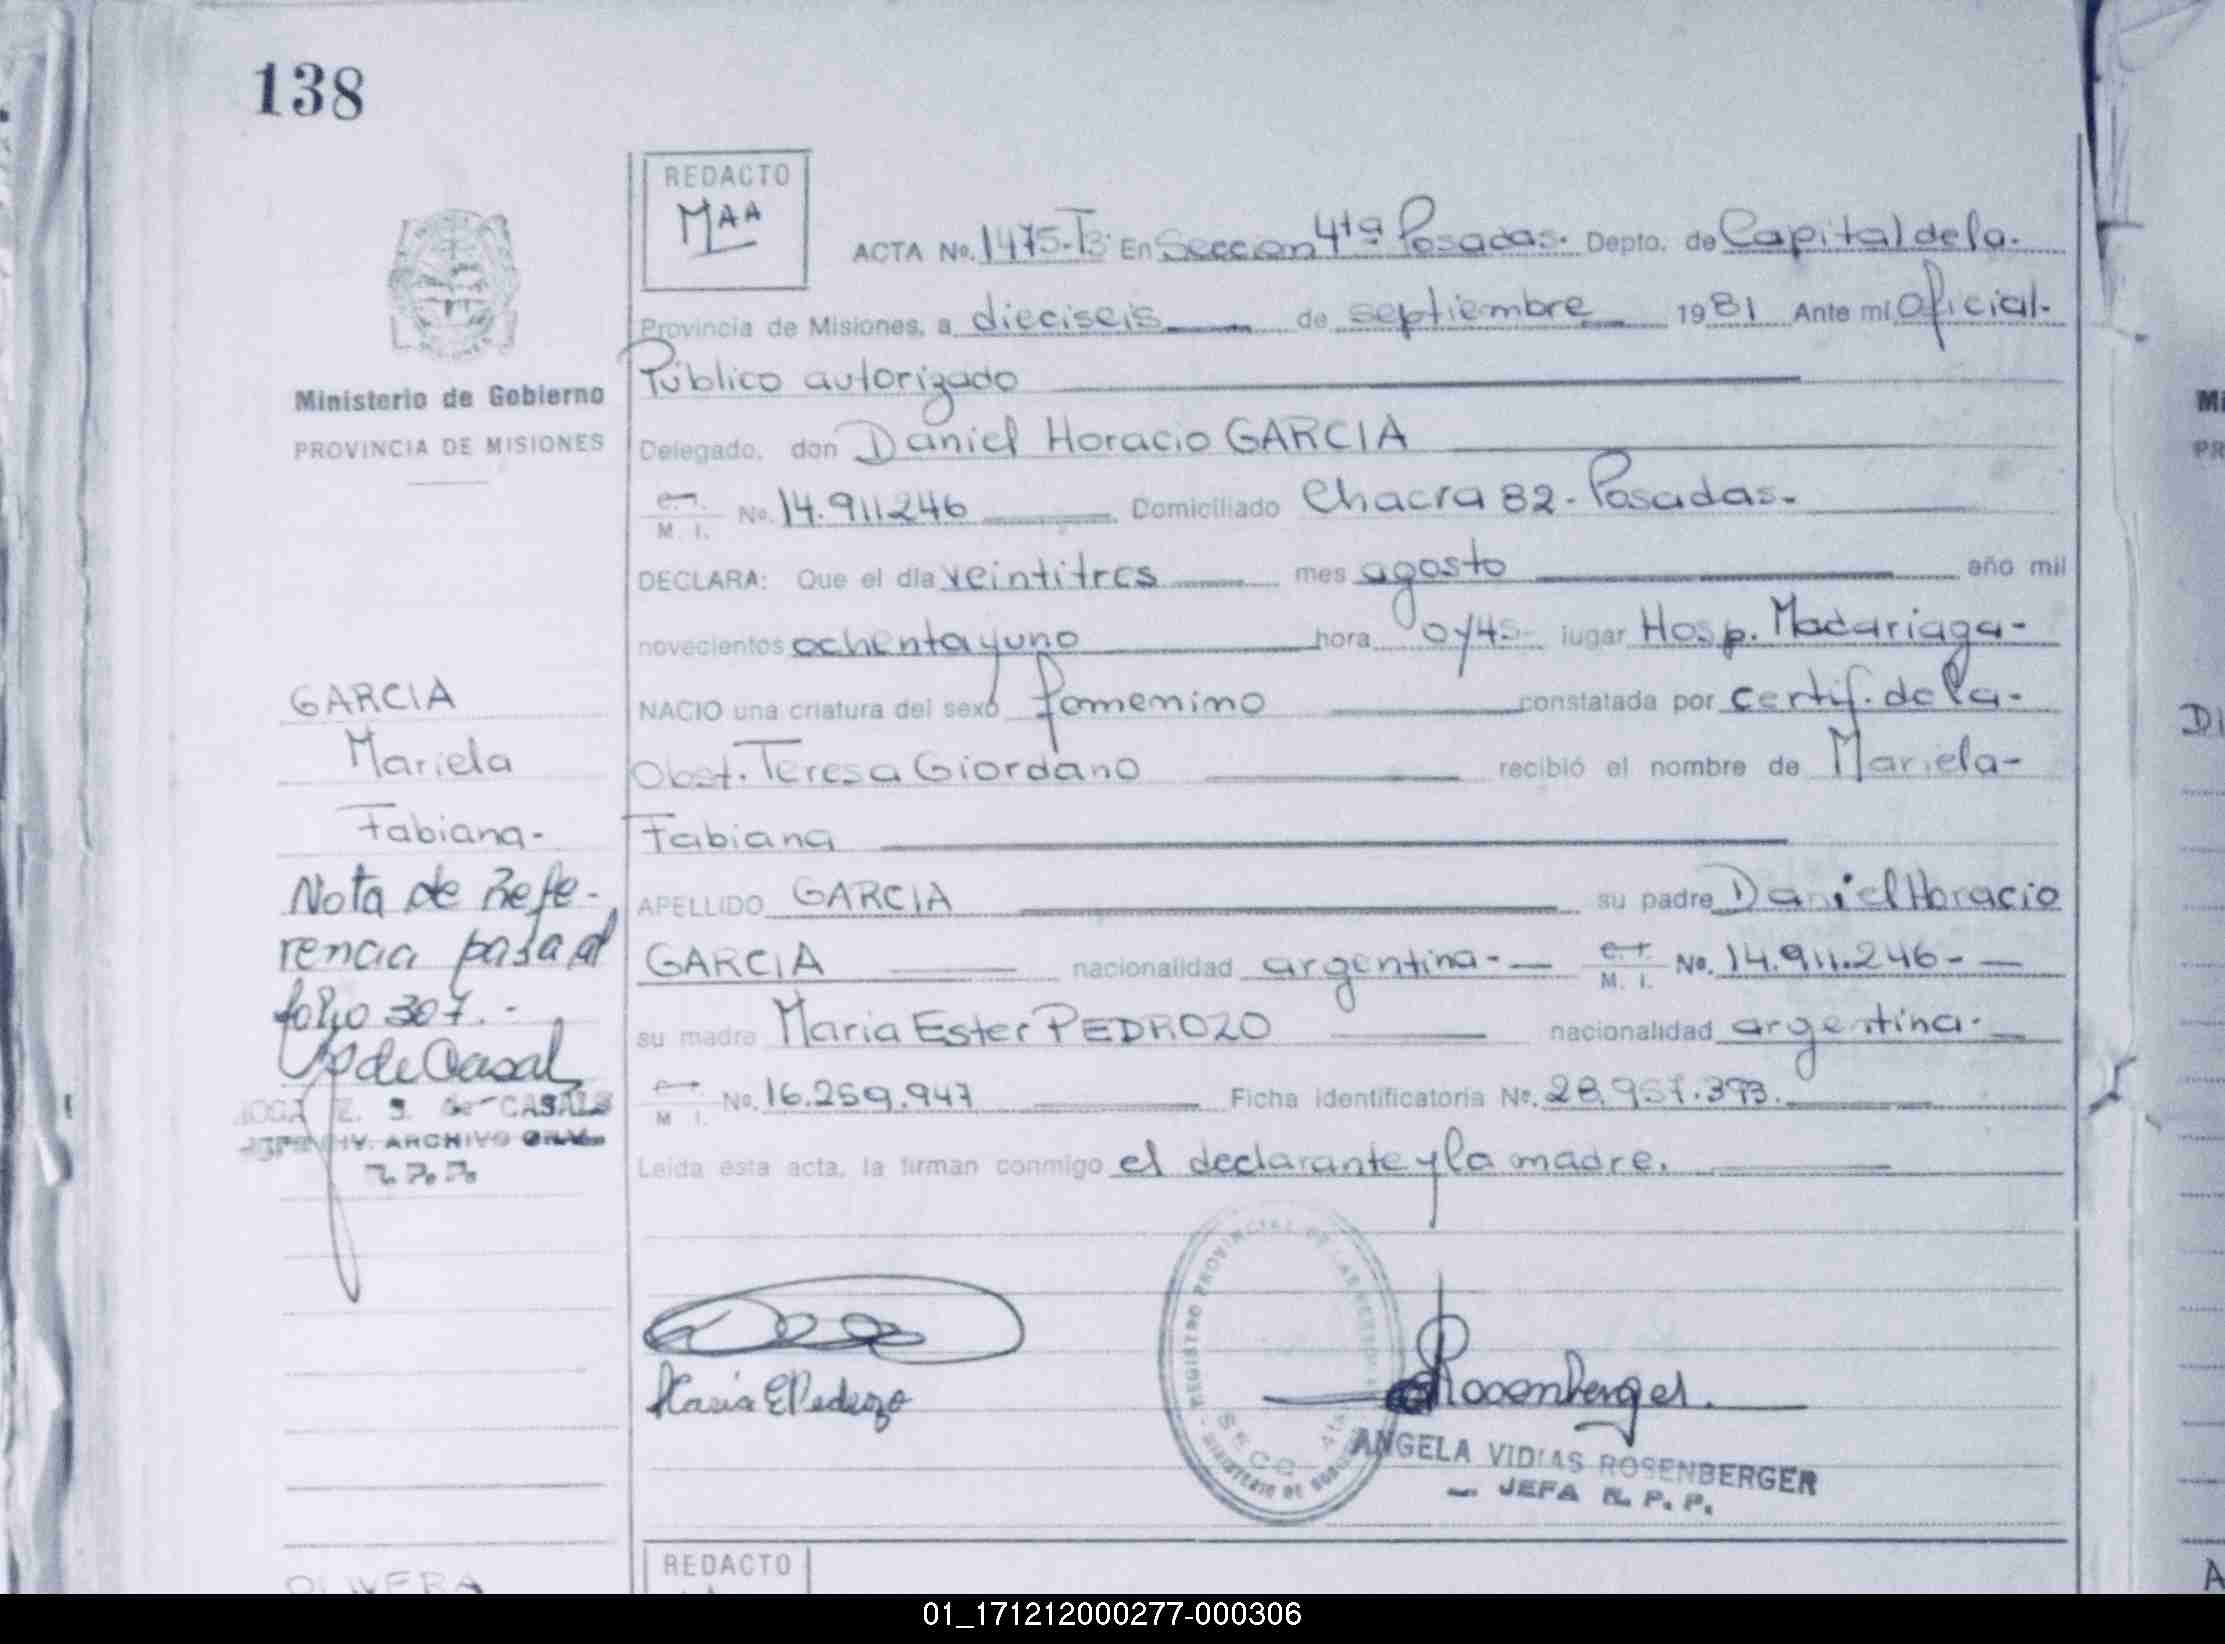 138
REDACTO
MAA
ACTA No. 1475-T3 En Seccion 4ta Posadas. Depto. de Capital de la.
Provincia de Misiones, a dieciseis de septiembre 1981 Ante mi Oficial.
Ministerio de Gobierno
PROVINCIA DE MISIONES
Público autorizado
Delegado, don Daniel Horacio GARCIA
M. I. No. 14.911.246 Domiciliado Chacra 82 - Posadas.
DECLARA: Que el día veintitres mes agosto año mil
novecientos ochenta y uno hora 0 y 45 lugar Hosp. Madariaga-
NACIO una criatura del sexo femenino constatada por certif. de la-
Obst. Teresa Giordano recibió el nombre de Mariela-
Fabiana
APELLIDO GARCIA su padre Daniel Horacio
GARCIA nacionalidad argentina - M. I. No. 14.911.246-
su madre Maria Ester PEDROZO nacionalidad argentina-
M I. No. 16.259.947 Ficha identificatoria No. 28.957.393.
Leída esta acta, la firman conmigo el declarante y la madre.
GARCIA
Mariela
Fabiana-
Nota de Refe-
rencia pasa al
folio 307.-
de Casal
Z. S. de CASALS
DIV. ARCHIVO GRAL.
R.P.P.
Maria E Pedrozo
REGISTRO PROVINCIAL DE LAS PERSONAS
SECC. 4ta
MINISTERIO DE GOBIERNO
Rosenberger.
ANGELA VIDIAS ROSENBERGER
JEFA R. P. P.
REDACTO
OLIVERA
01_171212000277-000306